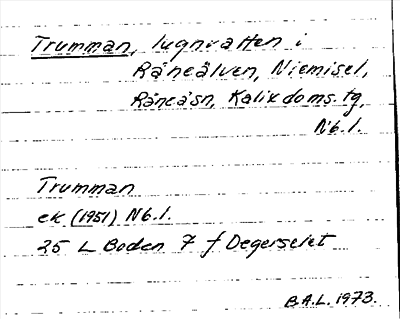 Trumman, lugnvatten i
Råneälven, Niemisel,
Råneå sn, Kalix doms. tg,
Nb. l.
Trumman
ek (1951) Nb. l.
25 L Boden 7 f Degerselet
B.A.L. 1973.